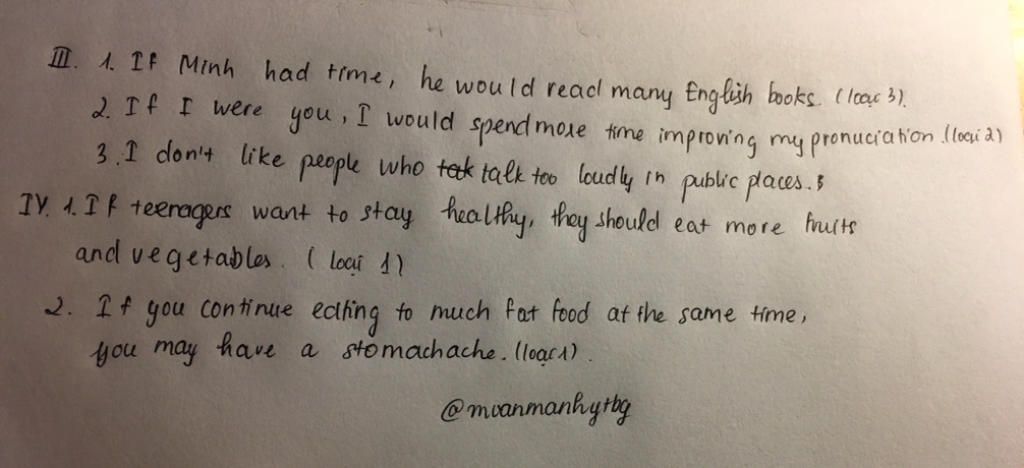 III. 1. If Minh had time, he would read many English books. (loại 3).
2. If I were you, I would spend more time improving my pronuciation. (loại 2)
3. I don't like people who tak talk too loudly in public places.
IV. 1. If teenagers want to stay healthy, they should eat more fruits
and vegetables. (loại 1)
2. If you continue eating to much fat food at the same time,
you may have a stomachache. (loại 1).
@mvanmanhytbg